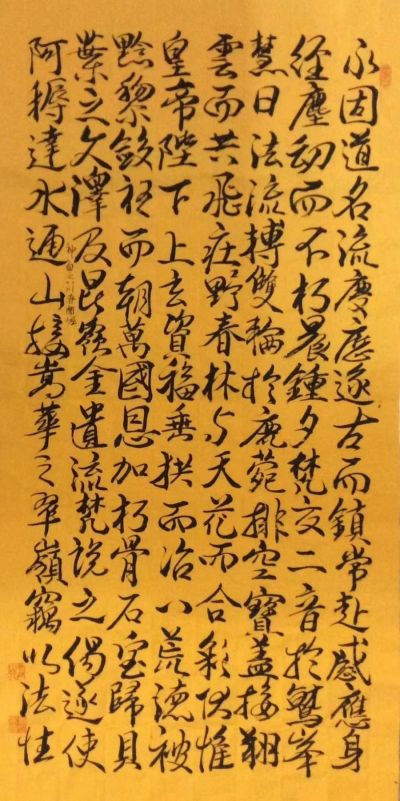 永固道名流慶歷遂古而鎮常赴感應身
經塵劫而不朽晨鍾夕梵交二音於鷲峯
慧日法流轉雙輪於鹿菀排空寶蓋接翔
雲而共飛莊野春林与天花而合彩伏惟
皇帝陛下上玄資福垂拱而治八荒德被
黔黎斂衽而朝萬國恩加朽骨石室歸貝
葉之文澤及昆金遺流梵說之偈遂使
阿耨達水通山接嵩華之翠嶺竊以法性
神甸之八川耆闍崛